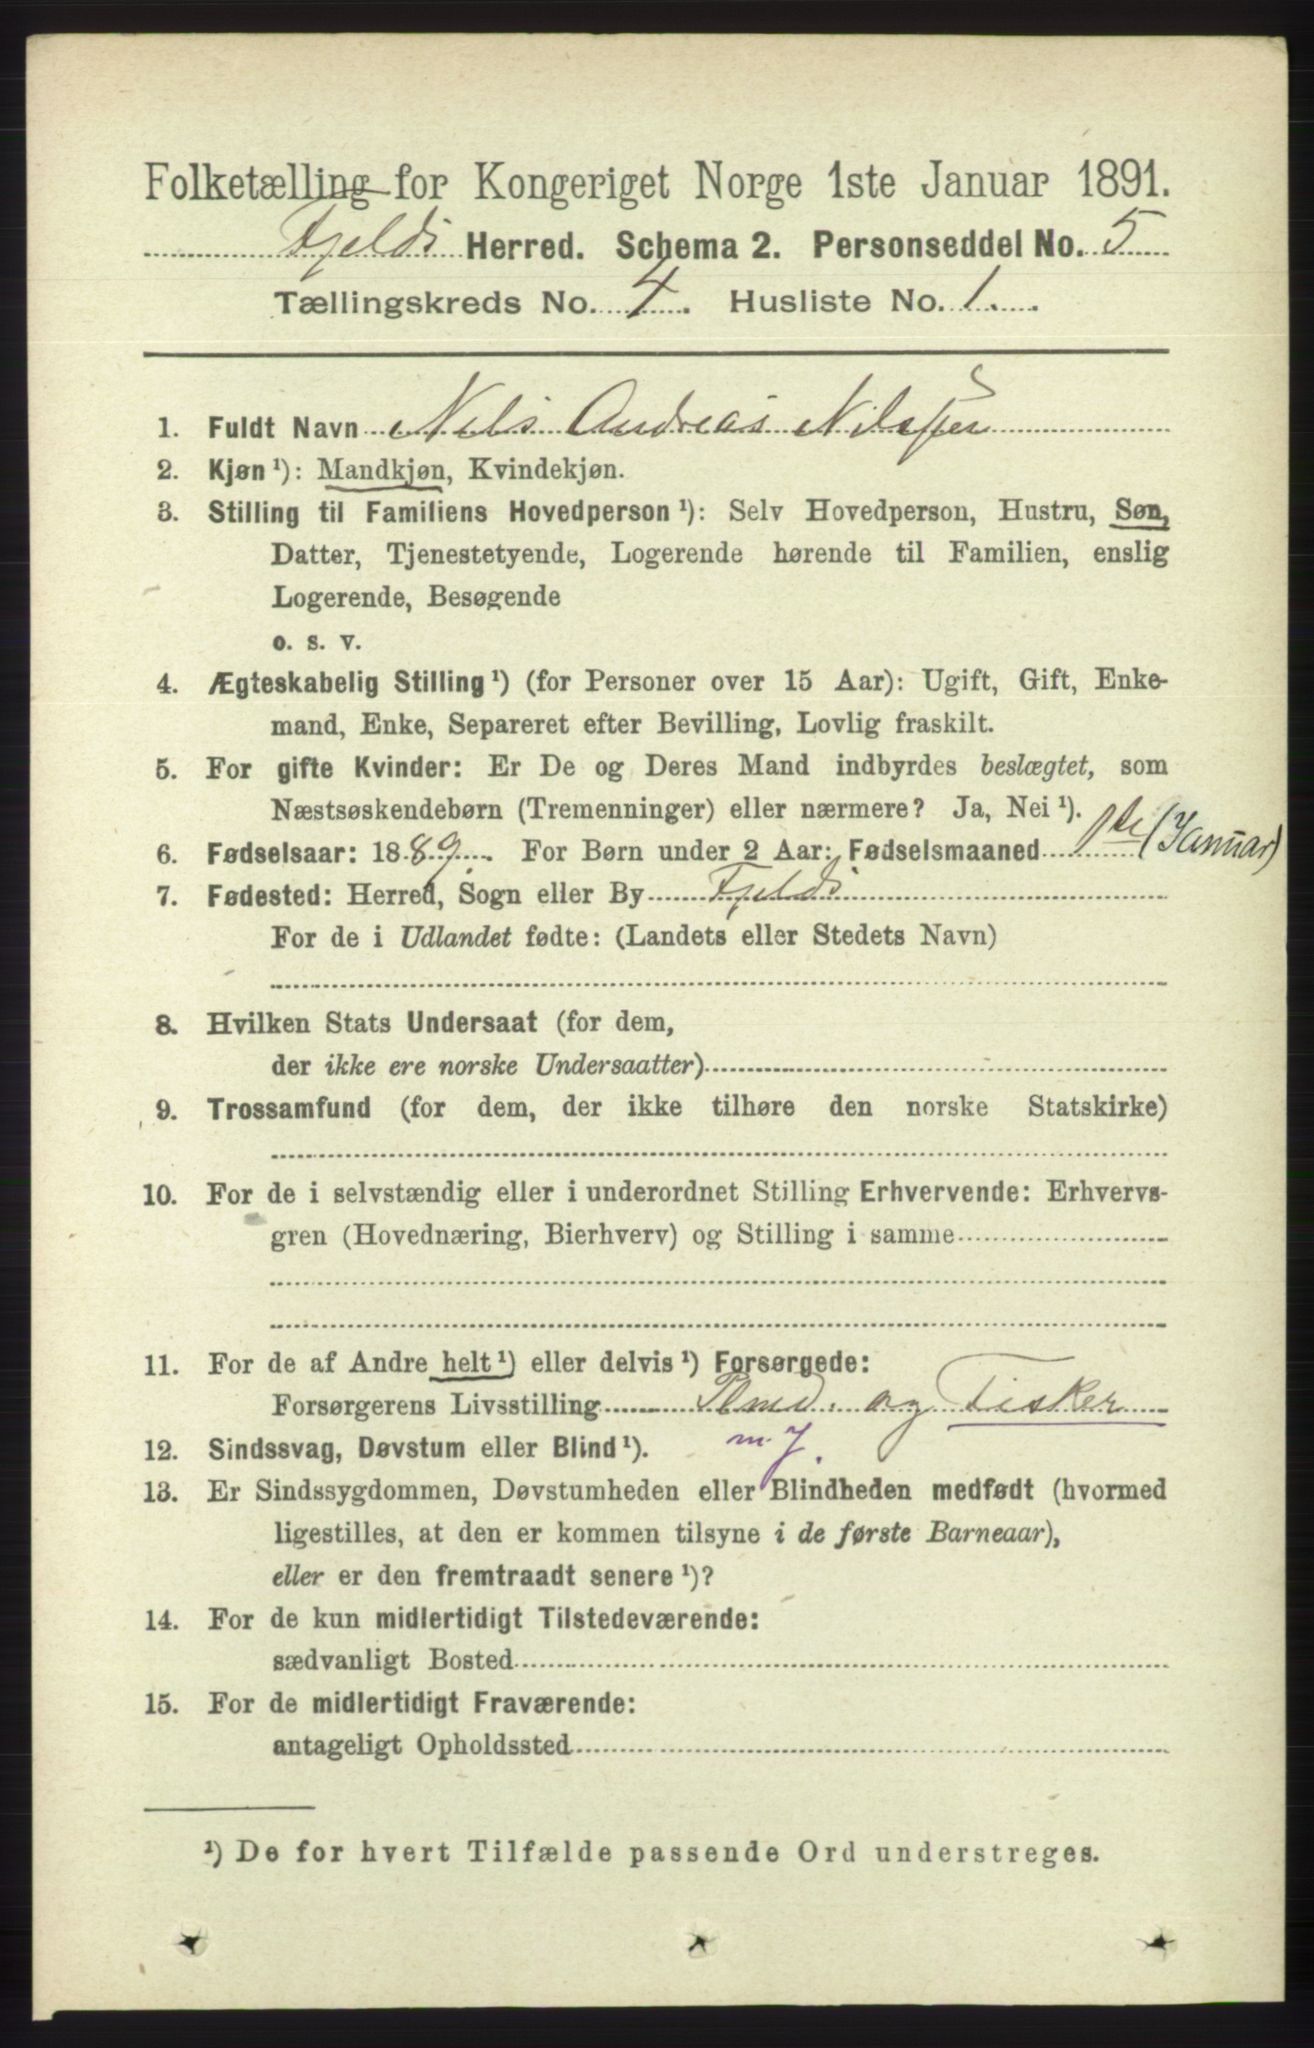 Folketælling for Kongeriget Norge 1ste Januar 1891.
Fjelds Herred. Schema 2. Personseddel No. 5
Tællingskreds No. 4. Husliste No. 1.
1. Fuldt Navn Nels Andreas Nilssen
2. Kjøn ¹): Mandkjøn, Kvindekjøn.
3. Stilling til Familiens Hovedperson ¹): Selv Hovedperson, Hustru, Søn,
Datter, Tjenestetyende, Logerende hørende til Familien, enslig
Logerende, Besøgende
o. s. v.
4. Ægteskabelig Stilling ¹) (for Personer over 15 Aar): Ugift, Gift, Enke-
mand, Enke, Separeret efter Bevilling, Lovlig fraskilt.
5. For gifte Kvinder: Er De og Deres Mand indbyrdes beslægtet, som
Næstsøskendebørn (Tremenninger) eller nærmere? Ja, Nei ¹).
6. Fødselsaar: 1889. For Børn under 2 Aar: Fødselsmaaned 1ste (Januar)
7. Fødested: Herred, Sogn eller By Fjelds
For de i Udlandet fødte: (Landets eller Stedets Navn)
8. Hvilken Stats Undersaat (for dem,
der ikke ere norske Undersaatter)
9. Trossamfund (for dem, der ikke tilhøre den norske Statskirke)
10. For de i selvstændig eller i underordnet Stilling Erhvervende: Erhvervs-
gren (Hovednæring, Bierhverv) og Stilling i samme
11. For de af Andre helt ¹) eller delvis ¹) Forsørgede:
Forsørgerens Livsstilling og Fisker
12. Sindssvag, Døvstum eller Blind ¹).
13. Er Sindssygdommen, Døvstumheden eller Blindheden medfødt (hvormed
ligestilles, at den er kommen tilsyne i de første Barneaar),
eller er den fremtraadt senere ¹)?
14. For de kun midlertidigt Tilstedeværende:
sædvanligt Bosted
15. For de midlertidigt Fraværende:
antageligt Opholdssted
¹) De for hvert Tilfælde passende Ord understreges.